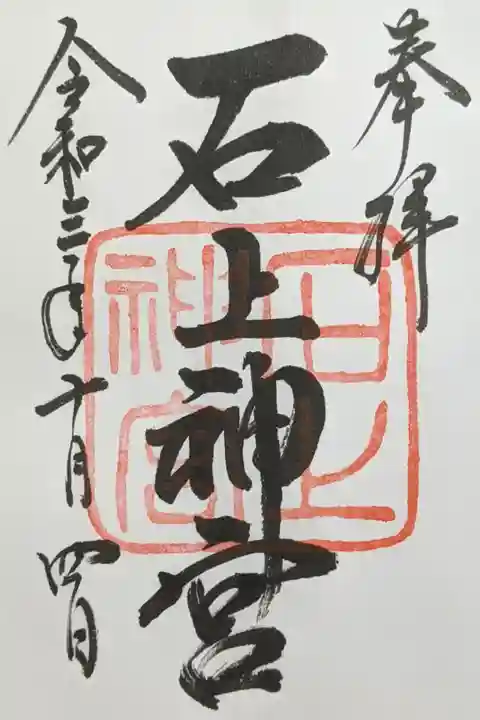 奉拝
石上神宮
石上
神宮
令和三年十月四日